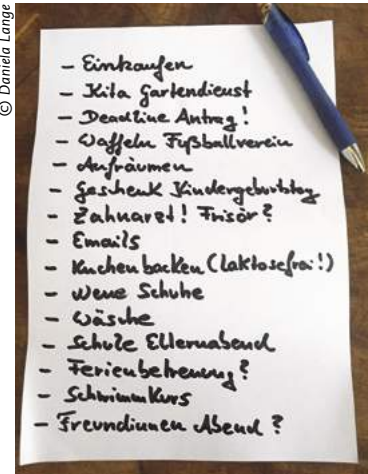 © Daniela Lange
- Einkaufen
- Kita Gartendienst
- Deadline Antrag!
- Waffeln Fußballverein
- Aufräumen
- Geschenk Kindergeburtstag
- Zahnarzt! Frisör?
- Emails
- Kuchen backen (laktosefrei!)
- neue Schuhe
- Wäsche
- Schule Elternabend
- Ferienbetreuung?
- Schwimmkurs
- Freundinnen Abend?